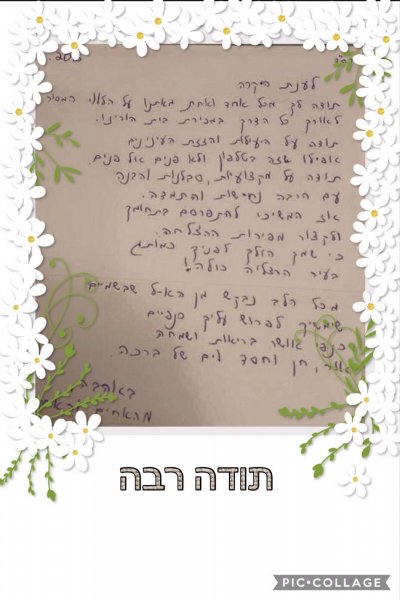 בס"ד
לענת היקרה
תודה לך מכל אחד ואחת מאתנו על הלווי המסור
לאורך כל הדרך במכירת בית הורינו.
תודה על היעילות והזזת העינינים
אפילו שזה בטלפון ולא פנים אל פנים
תודה על מקצועיות, סבלנות והבנה
עם הרבה נחישות והתמדה.
אז המשיכי להתפרסם בתחומך
ולקצור מפירות ההצלחה.
כי שמך הולך לפניך כמותג
בעיר הרצליה כולה!
מכל הלב נבקש מן האל שבשמיים
שימשיך לפרוש עליך כנפיים
כנפי אושר בריאות ושמחה
אור, חן וחסד וים של ברכה.
באהבה
מהאחים
תודה רבה
PIC•COLLAGE